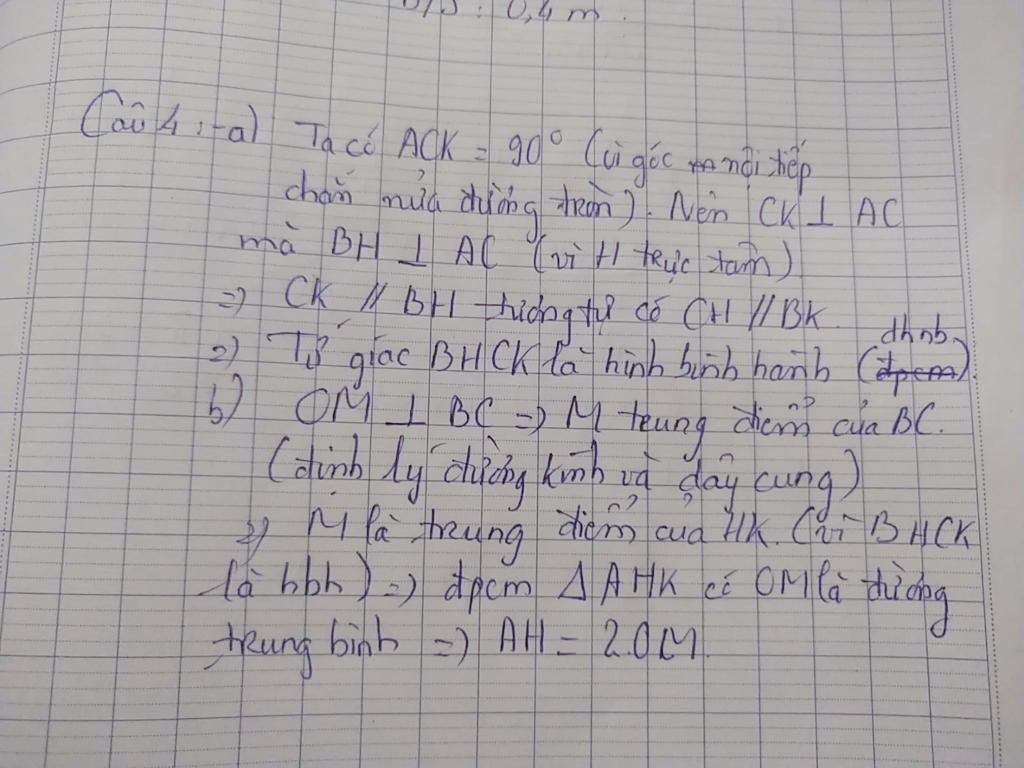 Đ/S: 0,4 m.
Câu 4: a) Ta có ACK = 90° (vì góc nội tiếp
chắn nửa đường tròn). Nên CK ⊥ AC
mà BH ⊥ AC (vì H trực tâm)
=> CK // BH tương tự có CH // BK.
dhnb
=> Tứ giác BHCK là hình bình hành (đpcm).
b) OM ⊥ BC => M trung điểm của BC.
(định lý đường kính và dây cung)
=> M là trung điểm của HK. (vì BHCK
là hbh) => đpcm Δ AHK có OM là đường
trung bình => AH = 2.OM.